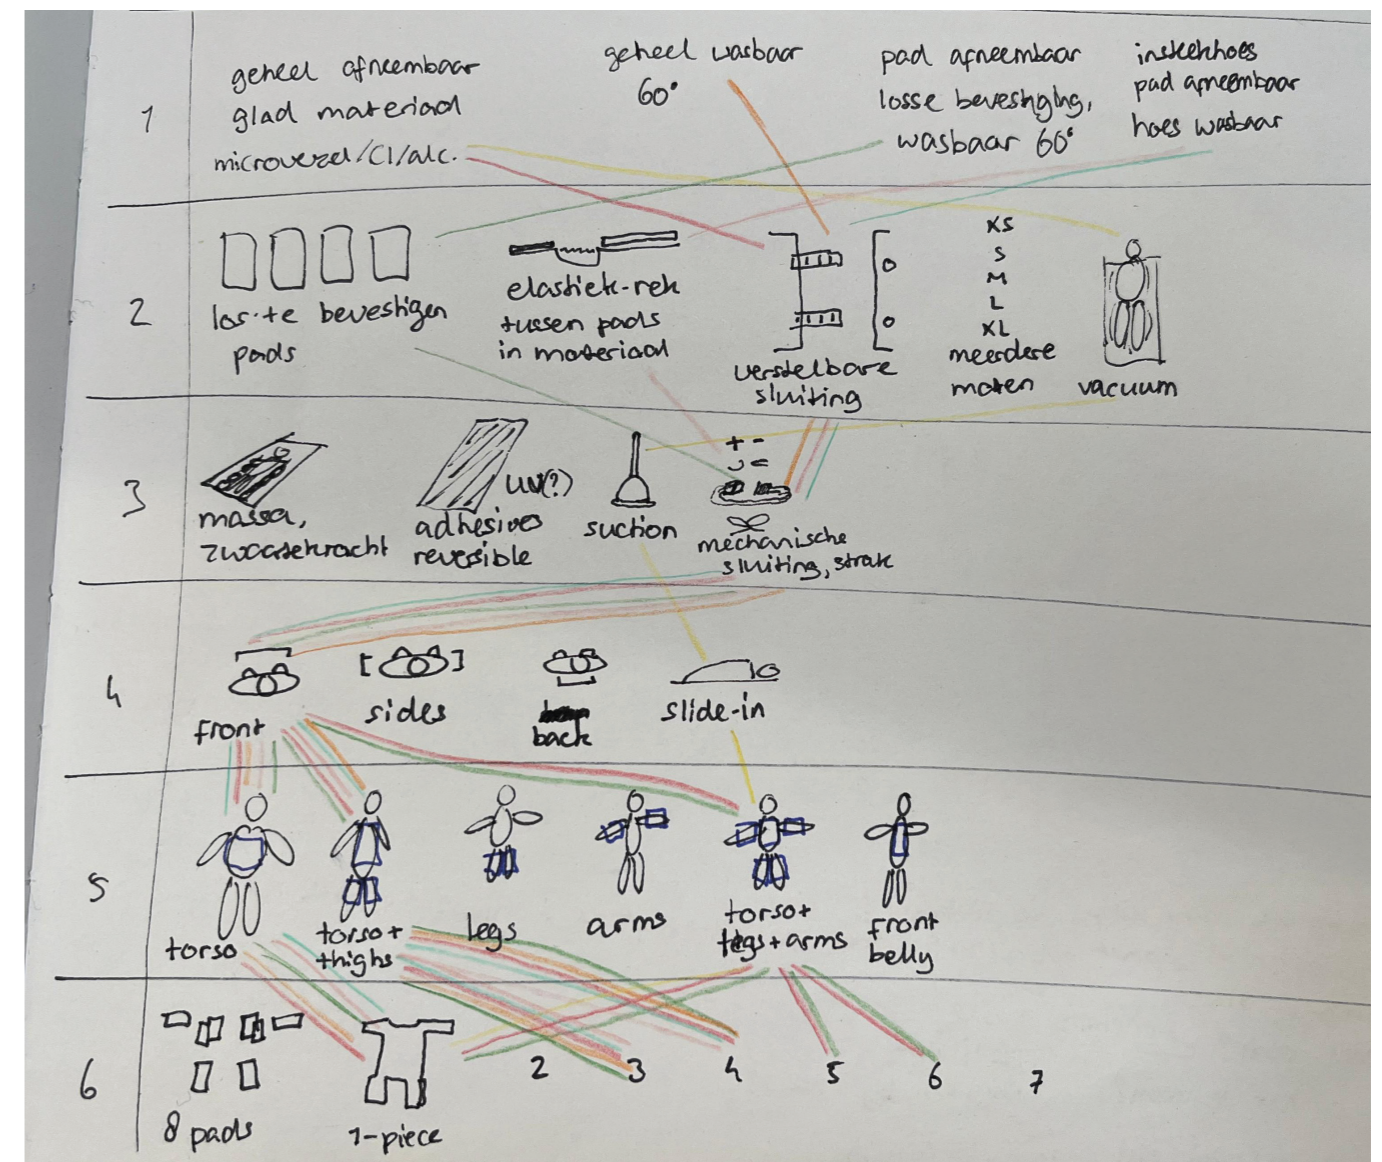 1
geheel afneembaar
glad materiaal
microvezel/Cl/alc.
geheel wasbaar
60°
pad afneembaar
losse bevestiging,
wasbaar 60°
insteekhoes
pad afneembaar
hoes wasbaar
2
los te bevestigen
pads
elastiek-rek
tussen pads
in materiaal
verstelbare
sluiting
XS
S
M
L
XL
meerdere
maten
vacuum
3
massa,
zwaartekracht
UV(?)
adhesives
reversible
suction
+ -
mechanische
sluiting, strak
4
front
sides
back
slide-in
5
torso
torso+
thighs
legs
arms
torso+
legs+arms
front
belly
6
8 pads
1-piece
2
3
4
5
6
7